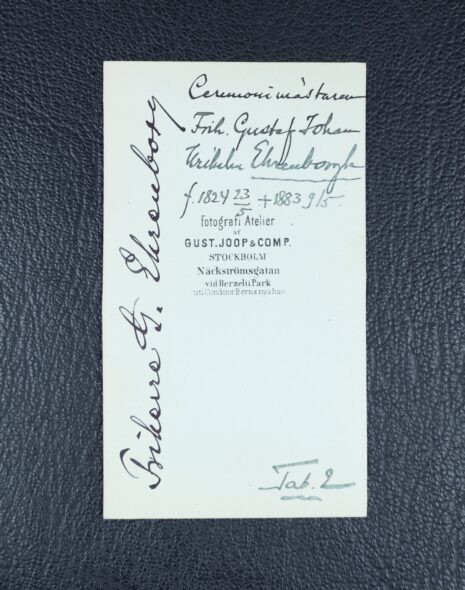 Ceremonimästaren
Frih. Gustaf Johan
Wilhelm Ehrenborgh
f. 1824 23/5 + 1883 9/5
Fotografi Atelier
af
GUST. JOOP & COMP.
STOCKHOLM
Näckströmsgatan
vid Berzelii Park
uti Conditor Bernsnyahus
Friherre G. Ehrenborg
Tab. 2